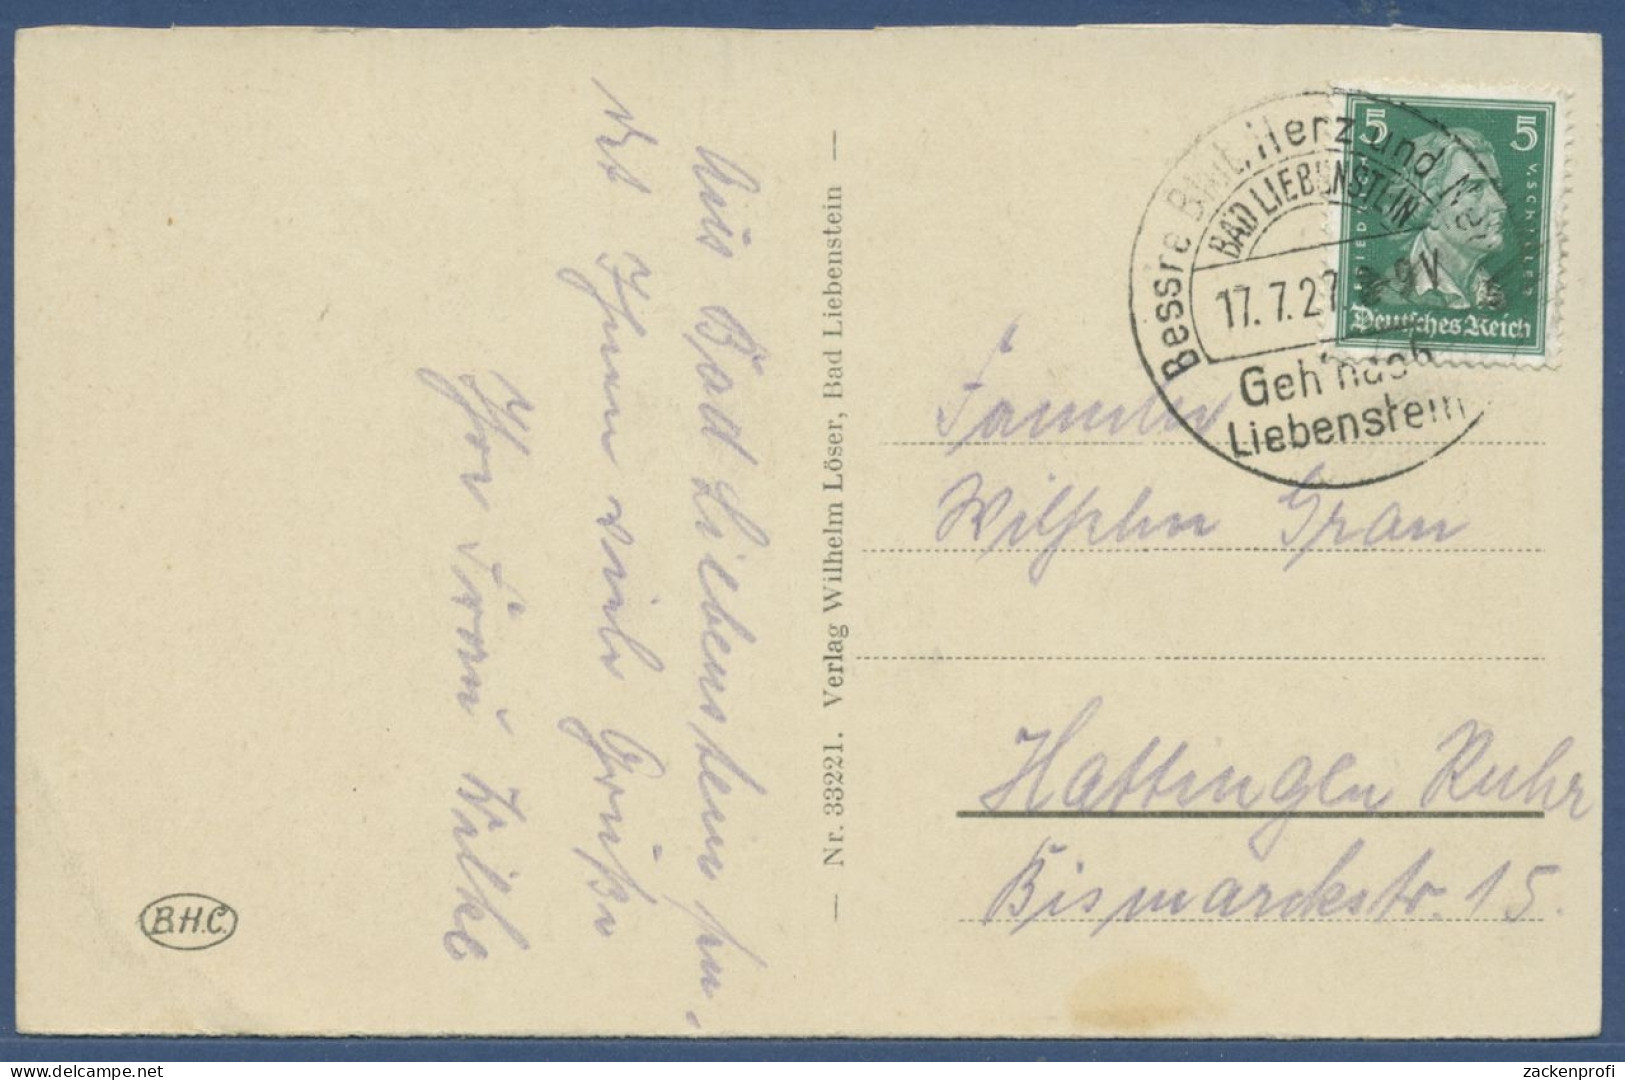 Aus Bad Liebenstein sen-
det Ihnen viele Grüße
Ihre Frau Wilke
B.H.C.
Nr. 33221. Verlag Wilhelm Löser, Bad Liebenstein
Bessre Blut, Herz und
BAD LIEBENSTEIN
17.7.27 8-9V
Geh' nach
Liebenstein
5 5
FRIEDR. V. SCHILLER
Deutsches Reich
Familie
Wilhelm Grau
Hattingen Ruhr
Bismarckstr. 15.
zackenprofi
www.delcampe.net